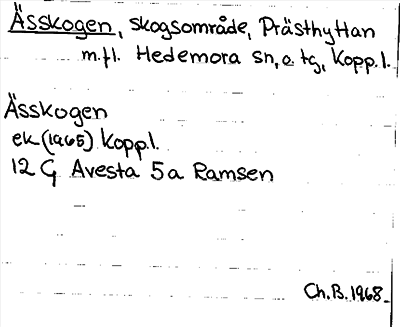 Ässkogen, skogsområde, Prästhyttan
m.fl. Hedemora sn, o. tg, Kopp.l.
Ässkogen
ek (1965) Kopp.l.
12 G Avesta 5a Ramsen
Ch.B. 1968.